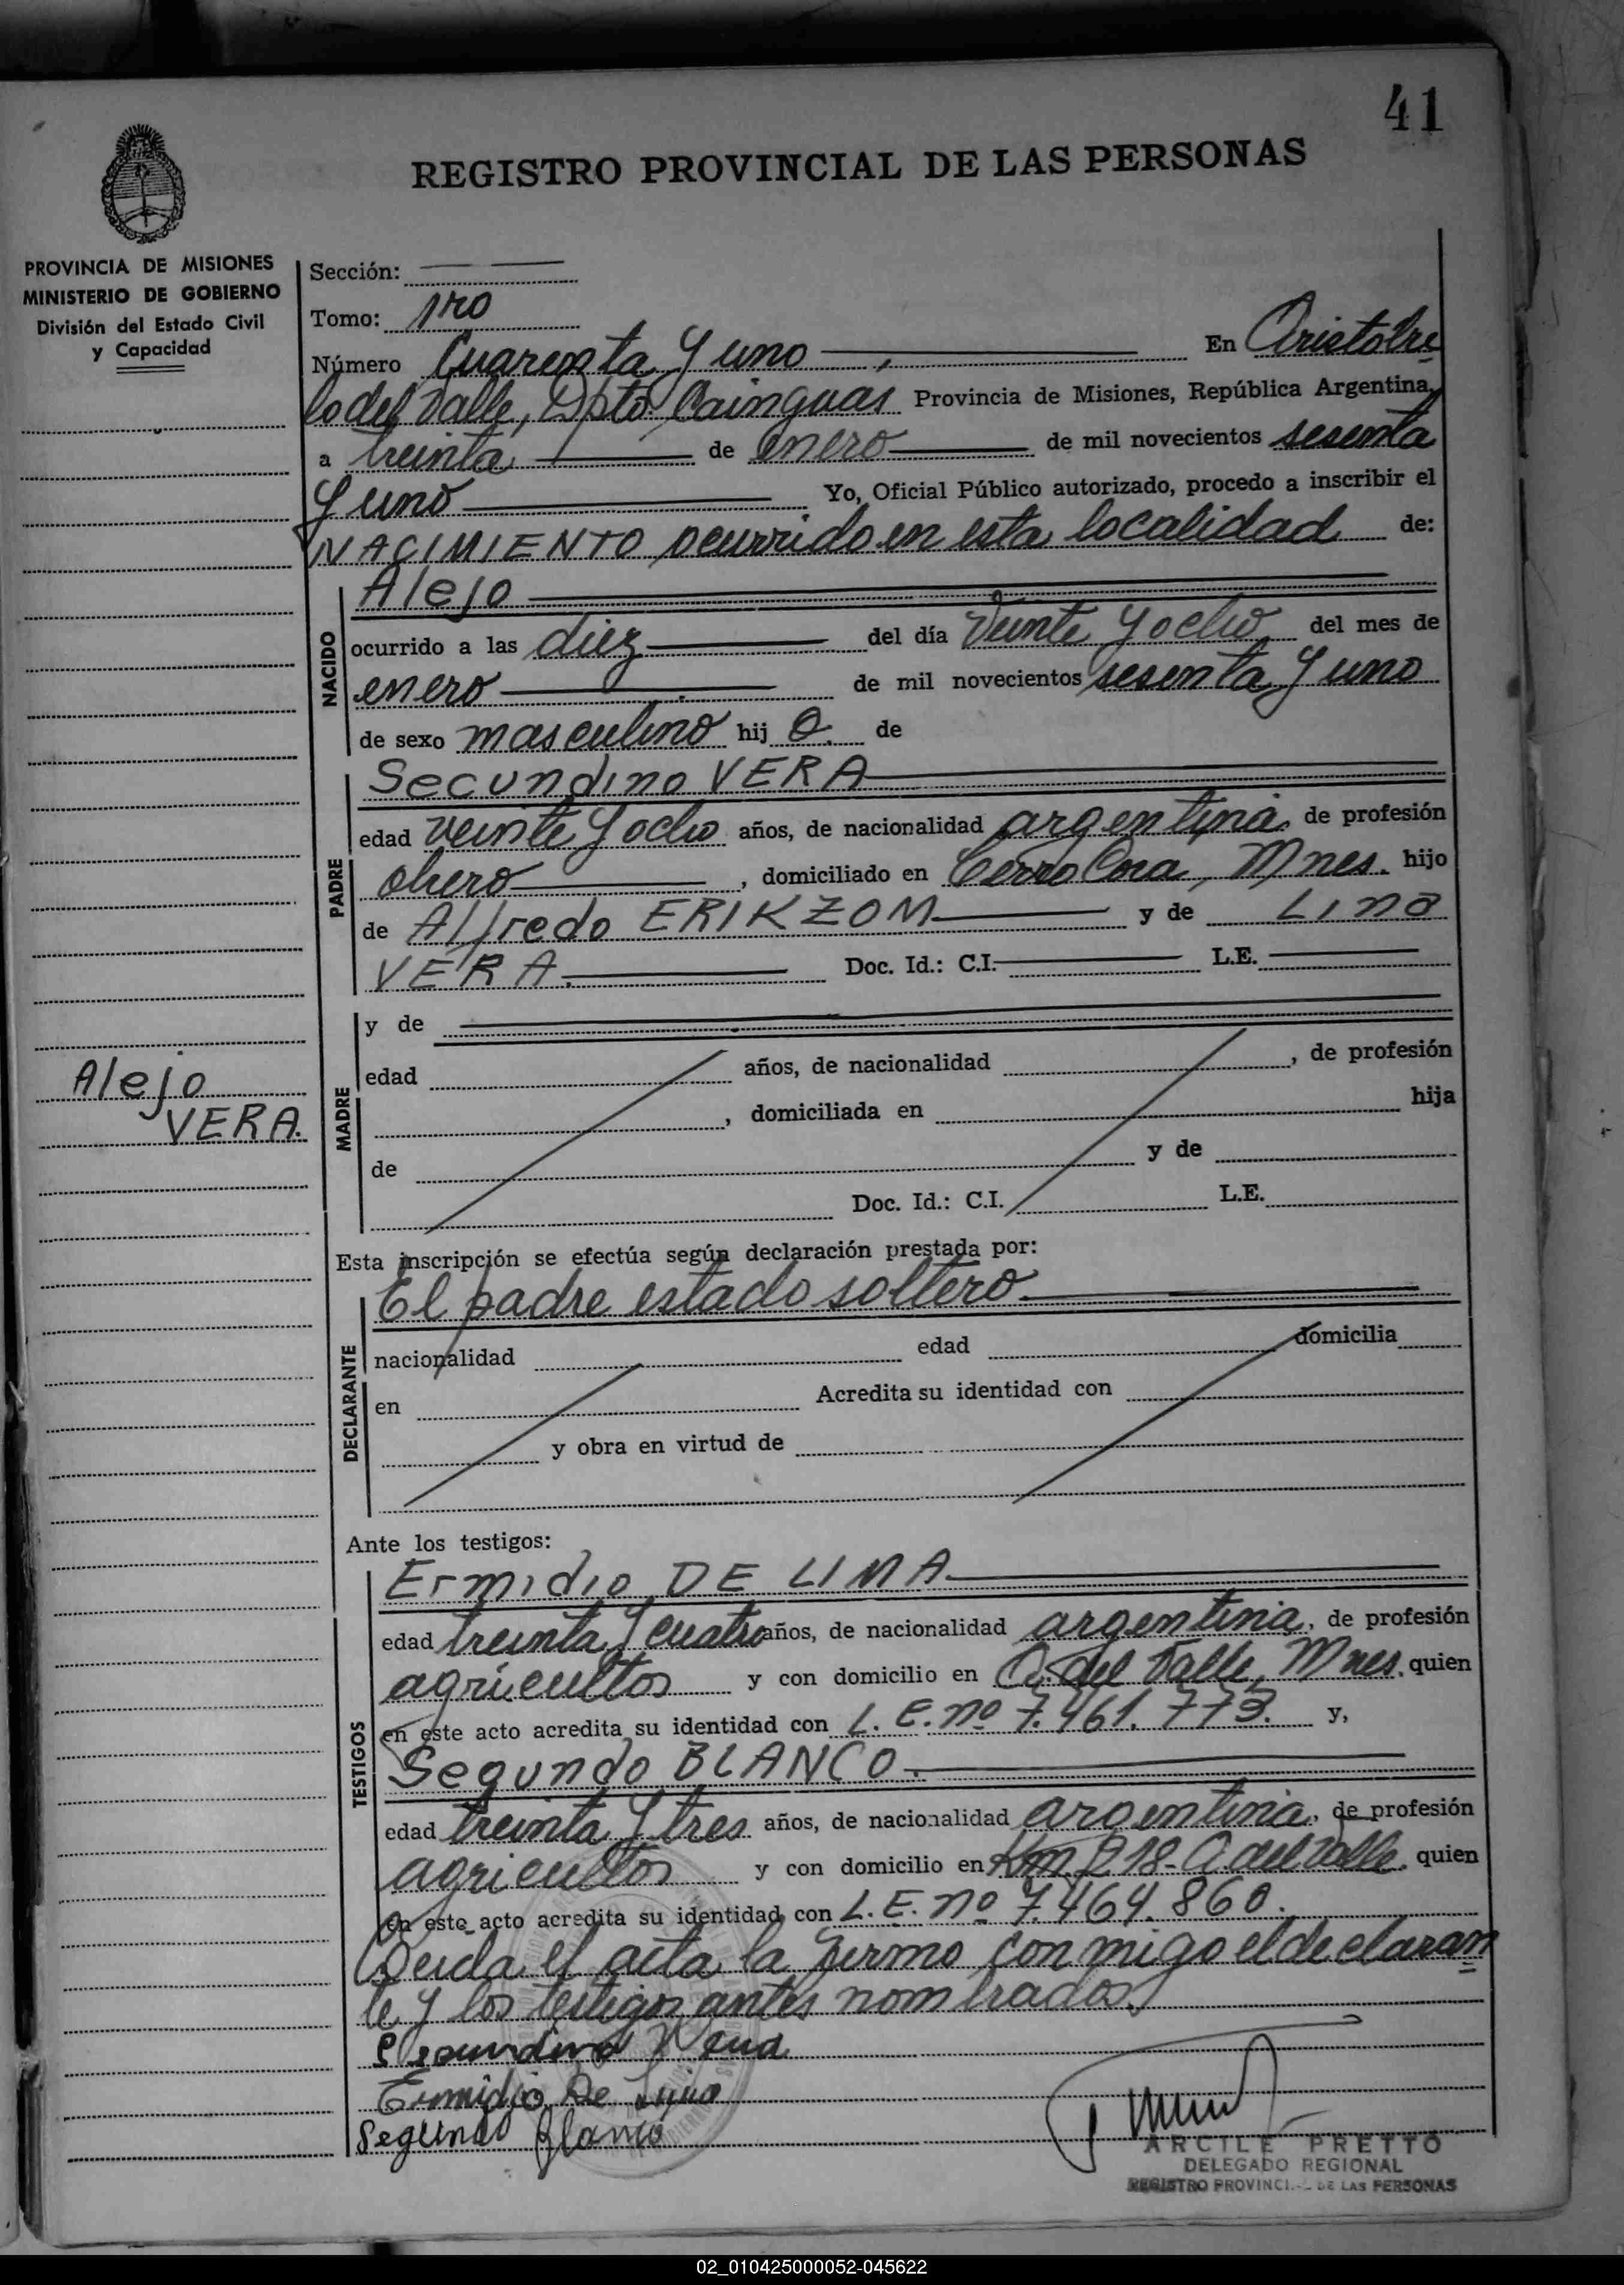 41
REGISTRO PROVINCIAL DE LAS PERSONAS
PROVINCIA DE MISIONES
MINISTERIO DE GOBIERNO
División del Estado Civil
y Capacidad
Sección:
Tomo: 1ro
Número Cuarenta y uno En Aristobu
lo del Valle, Dpto. Cainguas Provincia de Misiones, República Argentina,
a treinta de enero de mil novecientos sesenta
y uno Yo, Oficial Público autorizado, procedo a inscribir el
NACIMIENTO ocurrido en esta localidad de:
NACIDO
Alejo
ocurrido a las diez del día veinte y ocho del mes de
enero de mil novecientos sesenta y uno
de sexo masculino hij o. de
PADRE
Secundino VERA
edad veinte y ocho años, de nacionalidad argentina, de profesión
obrero, domiciliado en Cerro Cora, Mnes. hijo
de Alfredo ERIKZOM y de Lina
VERA. Doc. Id.: C.I. L.E.
MADRE
y de
edad años, de nacionalidad , de profesión
, domiciliada en hija
de y de
Doc. Id.: C.I. L.E.
Alejo
VERA.
Esta inscripción se efectúa según declaración prestada por:
DECLARANTE
El padre estado soltero
nacionalidad edad domicilia
en Acredita su identidad con
y obra en virtud de
Ante los testigos:
TESTIGOS
Ermidio DE LIMA
edad treinta y cuatro años, de nacionalidad argentina, de profesión
agricultor y con domicilio en A. del Valle, Mnes. quien
en este acto acredita su identidad con L. E. nº 7.461.773. y,
Segundo BLANCO.
edad treinta y tres años, de nacionalidad argentina, de profesión
agricultor y con domicilio en Km. 218 - A. del Valle, quien
en este acto acredita su identidad con L. E. nº 7.464.860.
Leida el acta la firmo con migo el declaran
te y los testigos antes nombrados.
Secundino Vera
Ermidio De Lima
Segundo Blanco
ARCILE PRETTO
DELEGADO REGIONAL
REGISTRO PROVINCIAL DE LAS PERSONAS
02_010425000052-045622